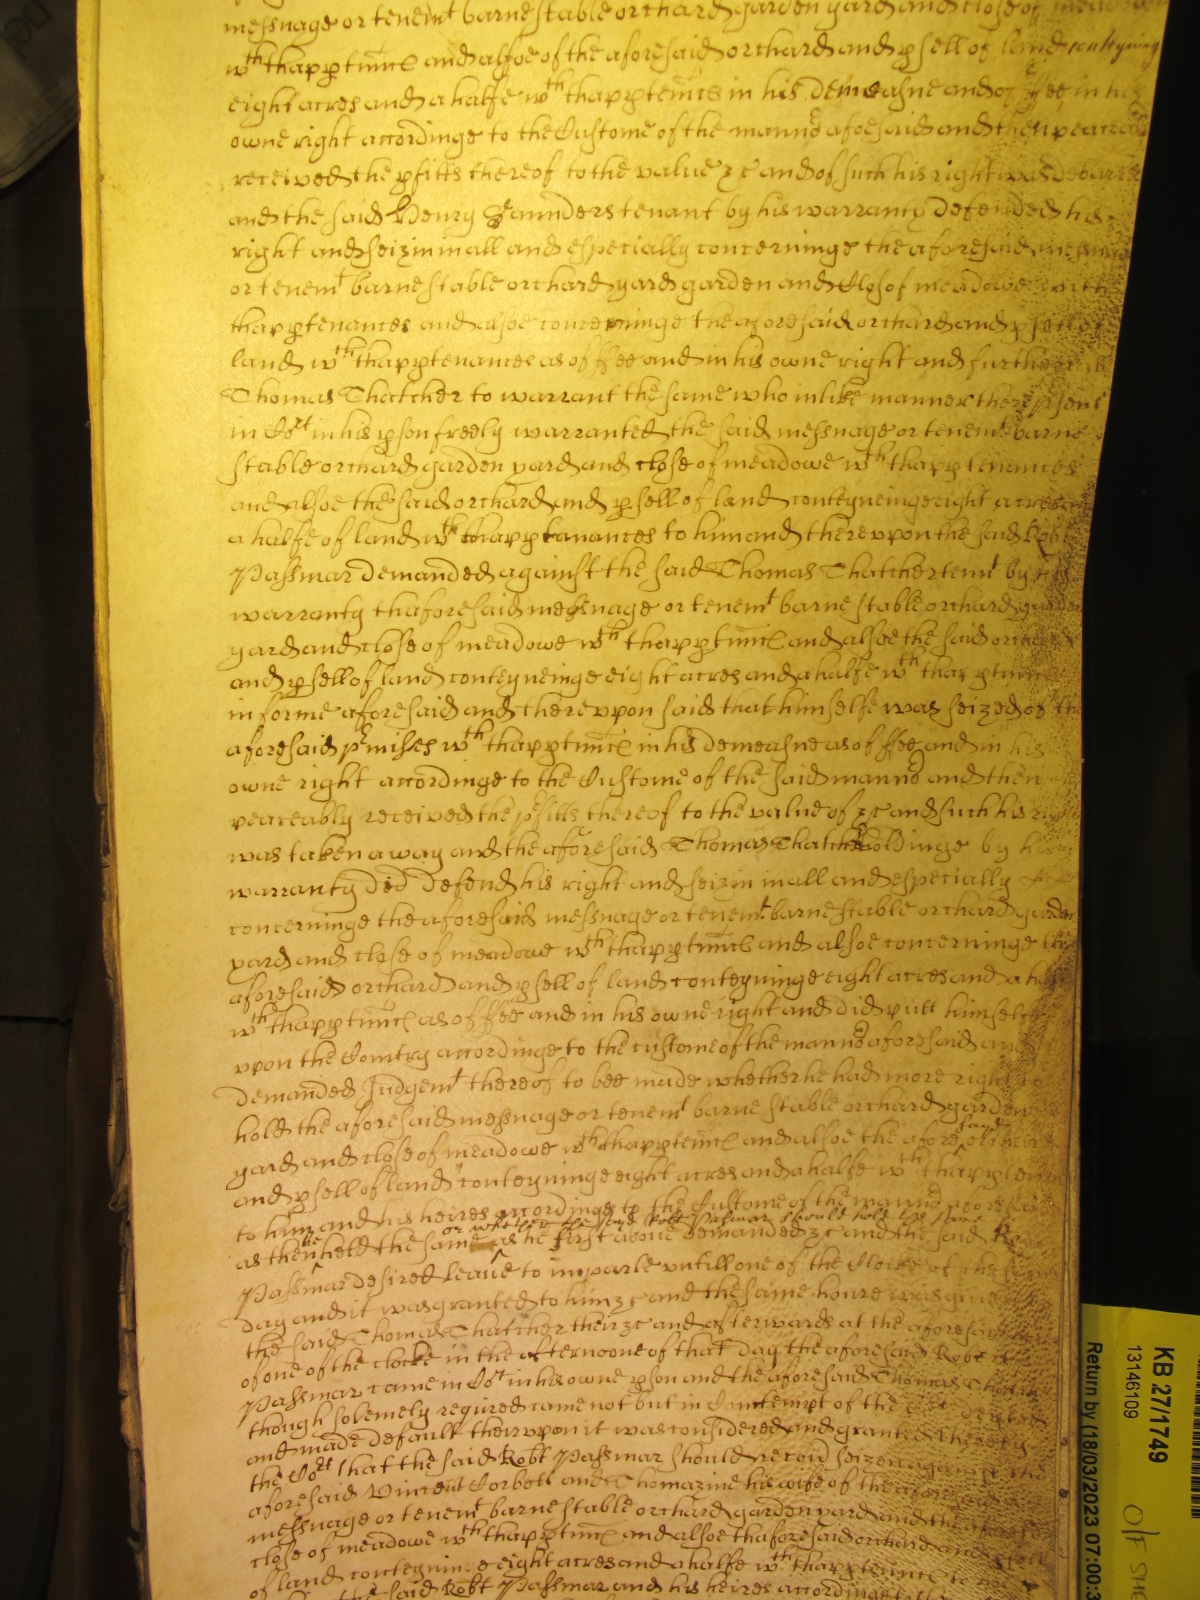 messuage or tenemt barne stable orchard garden yard and close of meadowe
wth thapptnncs and alsoe of the aforesaid orchard and psell of land conteyning
eight acres and a halfe wth thapptenncs in his demeasne and of ffee in his
owne right accordinge to the Custome of the mannor aforesaid and then peaceab
received the pfitts thereof to the value &c and of such his right was debarred
and the said Henry Saunders tenant by his warranty defended his
right and seizin in all and especially concerninge the aforesaid messuage
or tenemt barne stable orchard yard garden and Close of meadowe with
thapptenances and alsoe concerninge the aforesaid orchard and psell of
land wth thapptenances as of ffee and in his owne right and further
Thomas Thatcher to warrant the same who in like manner there psent
in Cort in his pson freely warranted the said messuage or tenemt barne
stable orchard garden yard and close of meadowe wth thapptenances
and alsoe the said orchard and psell of land conteyneinge eight acres
a halfe of land wth thapptenances to him and thereupon the said Robt
Passmar demanded against the said Thomas Thatcher tennt by his
warranty thaforesaid messuage or tenemt barne stable orchard garden
yard and close of meadowe wth thapptnncs and alsoe the said orchard
and psell of land conteyneinge eight acres and a halfe wth thapptnncs
in forme aforesaid and thereupon said that himselfe was seized of the
aforesaid pmises wth thapptnncs in his demeasne as of ffee and in his
owne right accordinge to the Custome of the said mannor and then
peaceably received the pfitts thereof to the value of &c and such his right
was taken away and the aforesaid Thomas Thatcher holdinge by his
warranty did defend his right and seizin in all and especially
concerninge the aforesaid messuage or tenemt barne stable orchard garden
yard and close of meadowe wth thapptnncs and alsoe concerninge the
aforesaid orchard and psell of land conteyninge eight acres and a halfe
wth thapptnncs as of ffee and in his owne right and did putt himselfe
upon the Countrey accordinge to the custome of the mannor aforesaid and
demanded Judgemt thereof to bee made whether he had more right to
hold the aforesaid messuage or tenemt barne stable orchard garden
yard and close of meadowe wth thapptnncs and alsoe the aforesaid orchard
and psell of land conteyninge eight acres and a halfe wth thapptenncs
to him and his heires accordinge to the Custome of the mannor aforesaid
or whether the said Robt Passmar should hold the same
as then he held the same as he first above demanded &c and the said Robt
Passmar desired leave to imparle untill one of the Clocke of the same
day and it was granted to him &c and the same houre was given
the said Thomas Thatcher then &c and afterwards at the aforesaid
of one of the clocke in the afternoone of that day the aforesaid Robert
Passmar came in Cort in his owne pson and the aforesaid Thomas Thatcher
though solemnely required came not but in Contempt of the Cort depted
and made default thereupon it was considered and granted thereby
the Cort that the said Robt Passmar should recover seizen against the
aforesaid Vincent Corbett and Thomazine his wife of the aforesaid
messuage or tenemt barne stable orchard garden yard and the aforesd
close of meadowe wth thapptnncs and alsoe thaforesaid orchard and psell
of land conteyninge eight acres and a halfe wth thapptenncs to
the said Robt Passmar and his heires accordinge
KB 27/1749
13146109
Return by (18/03/2023 07:00:3